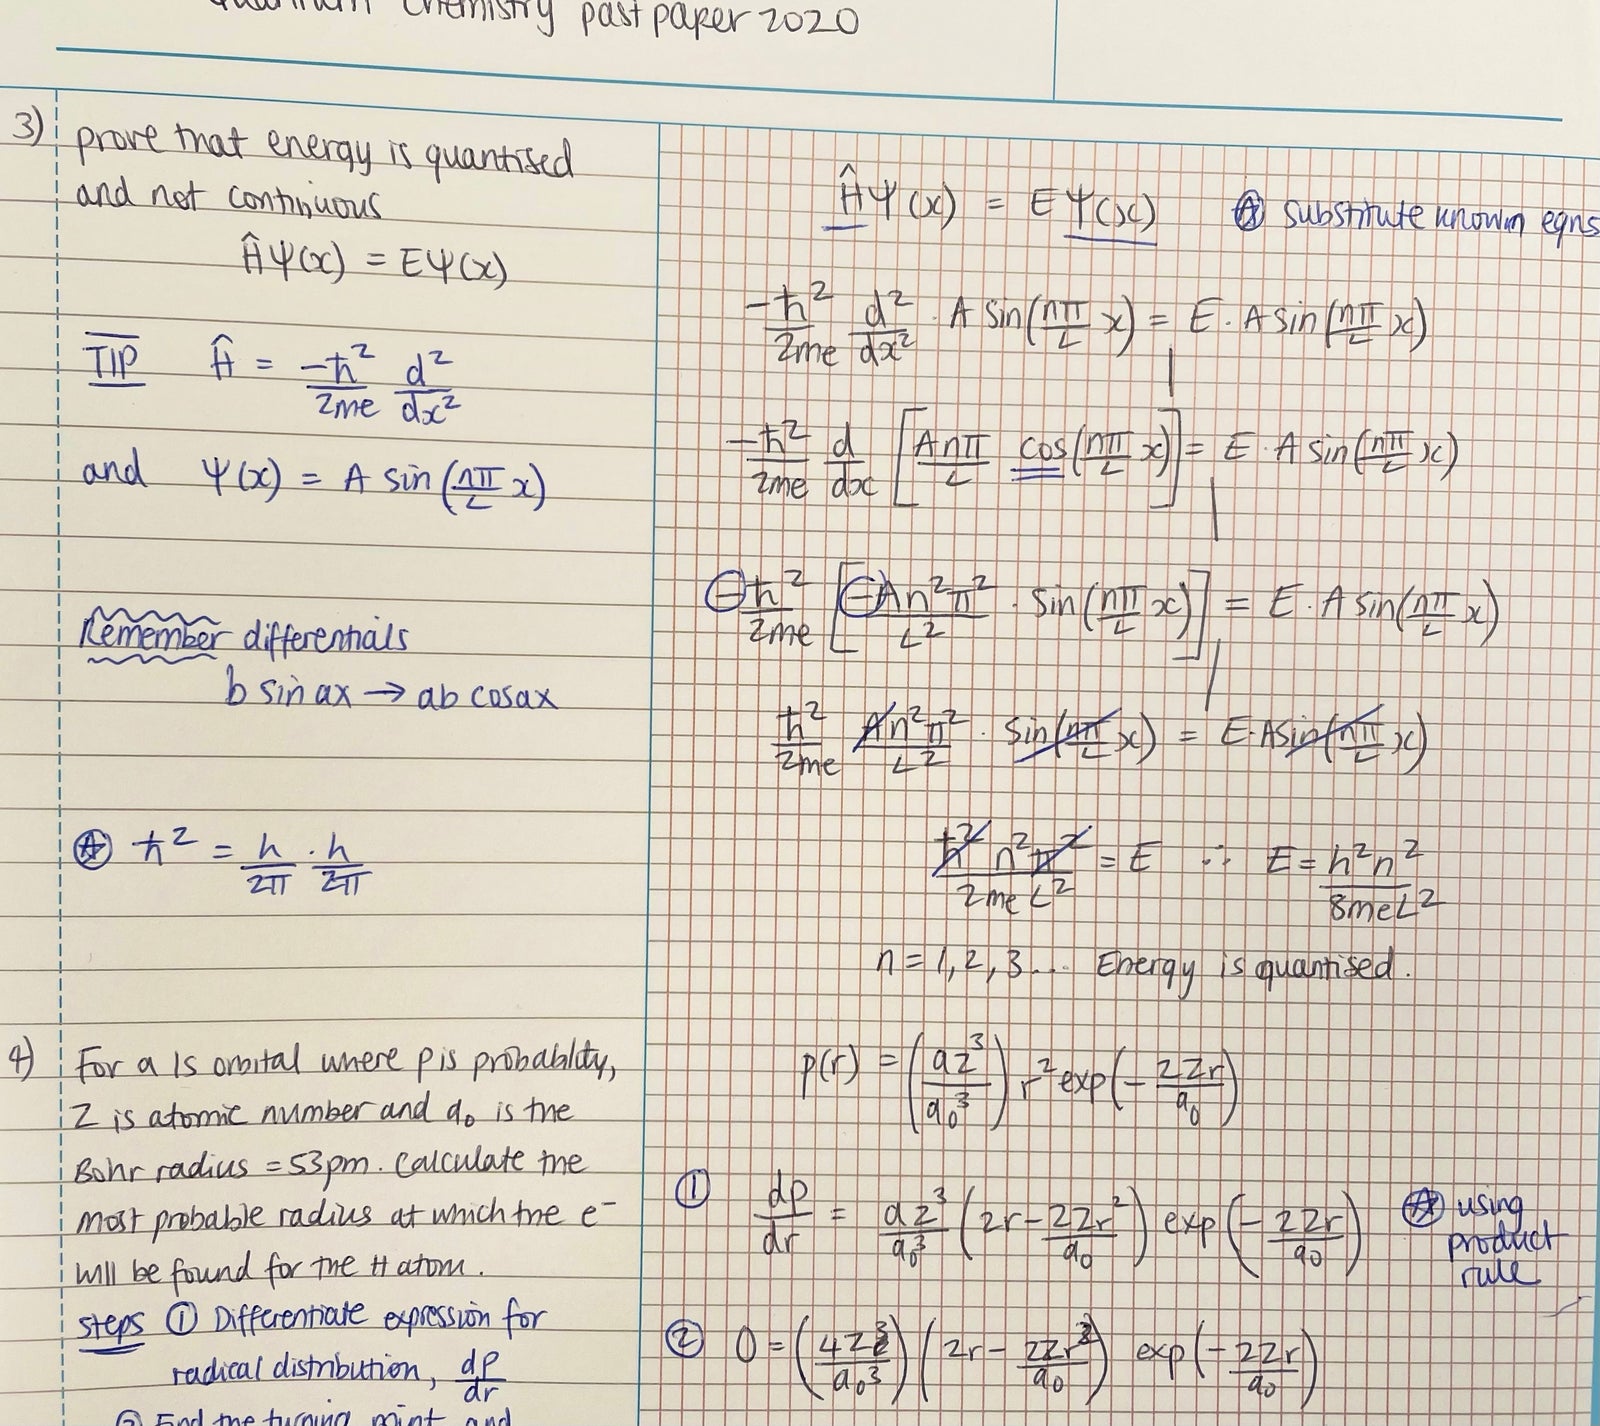 Quantum Chemistry past paper 2020
3) prove that energy is quantised
and not continuous
Ĥψ(x) = Eψ(x)
TIP Ĥ = -ħ²/2me d²/dx²
and ψ(x) = A sin(nπ/L x)
Remember differentials
b sin ax → ab cosax
⊛ ħ² = h/2π · h/2π
Ĥψ(x) = Eψ(x) ⊛ substitute known eqns
-ħ²/2me d²/dx² · A sin(nπ/L x) = E · A sin(nπ/L x)
-ħ²/2me d/dx [Anπ/L cos(nπ/L x)] = E · A sin(nπ/L x)
-ħ²/2me [-An²π²/L² · sin(nπ/L x)] = E · A sin(nπ/L x)
ħ²/2me An²π²/L² · sin(nπ/L x) = E·Asin(nπ/L x)
ħ²n²π²/2meL² = E ∴ E = h²n²/8meL²
n = 1, 2, 3... Energy is quantised.
4) For a 1s orbital where p is probabldty,
Z is atomic number and a₀ is the
Bohr radius = 53pm. Calculate the
most probable radius at which the e⁻
will be found for the H atom.
steps ① Differentiate expression for
radical distribution, dp/dr
② Find the turning point and
p(r) = (az³/a₀³) r² exp(-2Zr/a₀)
① dp/dr = az³/a₀³ (2r - 2Zr²/a₀) exp(-2Zr/a₀) ⊛ using
product
rule
② 0 = (4Z³/a₀³) (2r - 2Zr²/a₀) exp(-2Zr/a₀)